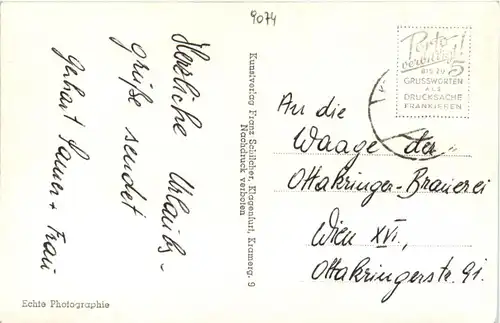 9074
Herzliche Urlaubs-
grüße sendet
Gerhart Sauer + Frau
Echte Photographie
Kunstverlag Franz Schilcher, Klagenfurt, Kramerg. 9
Nachdruck verboten
Porto
verbilligt!
BIS ZU 5
GRUSSWORTEN
ALS
DRUCKSACHE
FRANKIEREN
An die
Waage der
Ottakringer-Brauerei
Wien XVI.,
Ottakringerstr. 91.